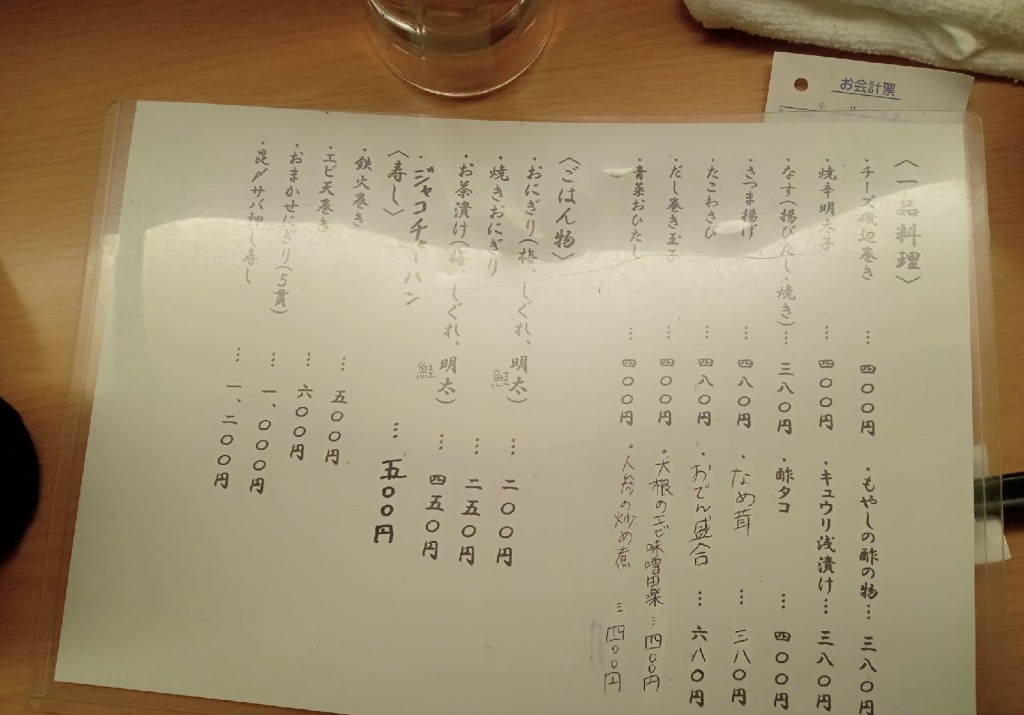 お会計票
〈一品料理〉
・チーズ磯辺巻き … 四〇〇円
・もやしの酢の物… 三八〇円
・焼辛明太子 … 四〇〇円
・キュウリ浅漬け… 三八〇円
・なす(揚びたし・焼き)… 三八〇円
・酢タコ … 四〇〇円
・さつま揚げ … 四八〇円
・なめ茸 … 三八〇円
・たこわさび … 四八〇円
・おでん盛合 … 六八〇円
・だし巻き玉子 … 四〇〇円
・大根のエビ味噌田楽 … 四〇〇円
・青菜おひたし … 四〇〇円
・人参の炒め煮 … 四〇〇円
〈ごはん物〉
・おにぎり(梅、しぐれ、明太) 鮭 … 二〇〇円
・焼きおにぎり … 二五〇円
・お茶漬け(梅、しぐれ、明太) 鮭 … 四五〇円
・ジャコチャーハン … 五〇〇円
〈寿し〉
・鉄火巻き … 五〇〇円
・エビ天巻き … 六〇〇円
・おまかせにぎり(5貫) … 一、〇〇〇円
・昆〆サバ押し寿し … 一、二〇〇円